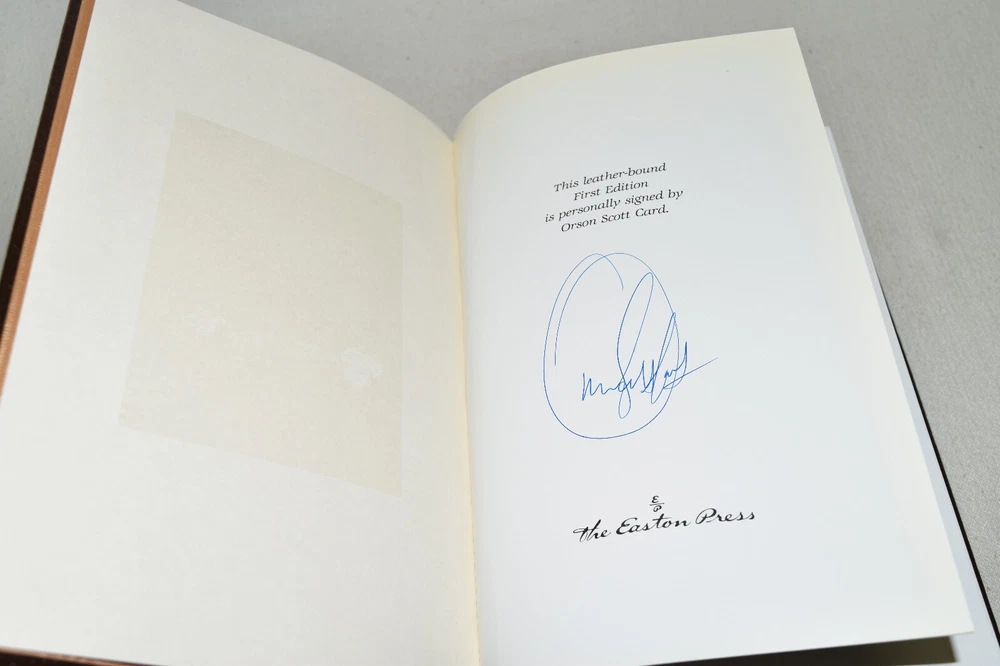 This leather-bound
First Edition
is personally signed by
Orson Scott Card.
the Easton Press